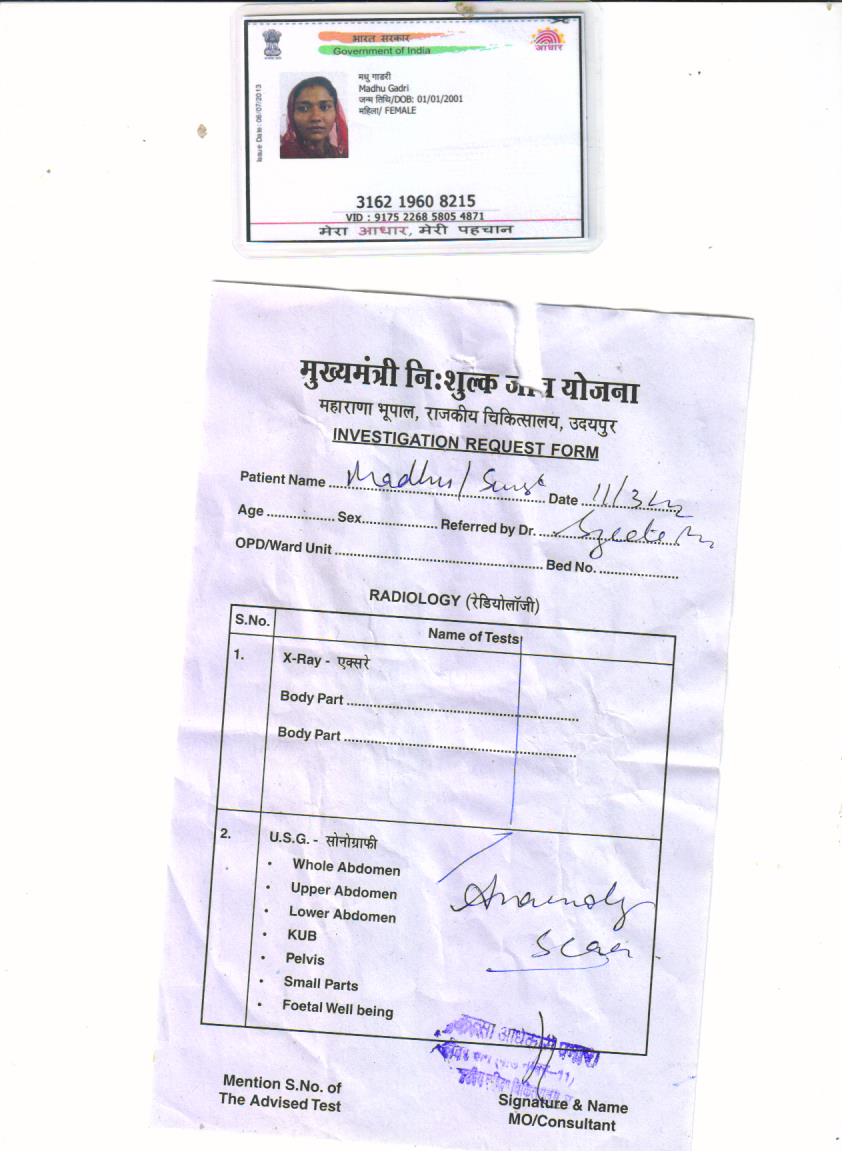 भारत सरकार
Government of India
आधार
Issue Date: 06/07/2013
मधु गाडरी
Madhu Gadri
जन्म तिथि/DOB: 01/01/2001
महिला/ FEMALE
3162 1960 8215
VID : 9175 2268 5805 4871
मेरा आधार, मेरी पहचान
मुख्यमंत्री नि:शुल्क योजना
महाराणा भूपाल, राजकीय चिकित्सालय, उदयपुर
INVESTIGATION REQUEST FORM
Patient Name Madhu/ Date 11/3/22
Age Sex Referred by Dr.
OPD/Ward Unit Bed No.
RADIOLOGY (रेडियोलॉजी)
S.No. Name of Tests
1. X-Ray - एक्सरे
Body Part
Body Part
2. U.S.G. - सोनोग्राफी
• Whole Abdomen
• Upper Abdomen
• Lower Abdomen
• KUB
• Pelvis
• Small Parts
• Foetal Well being
Anamoly
Scan
Mention S.No. of
The Advised Test
Signature & Name
MO/Consultant